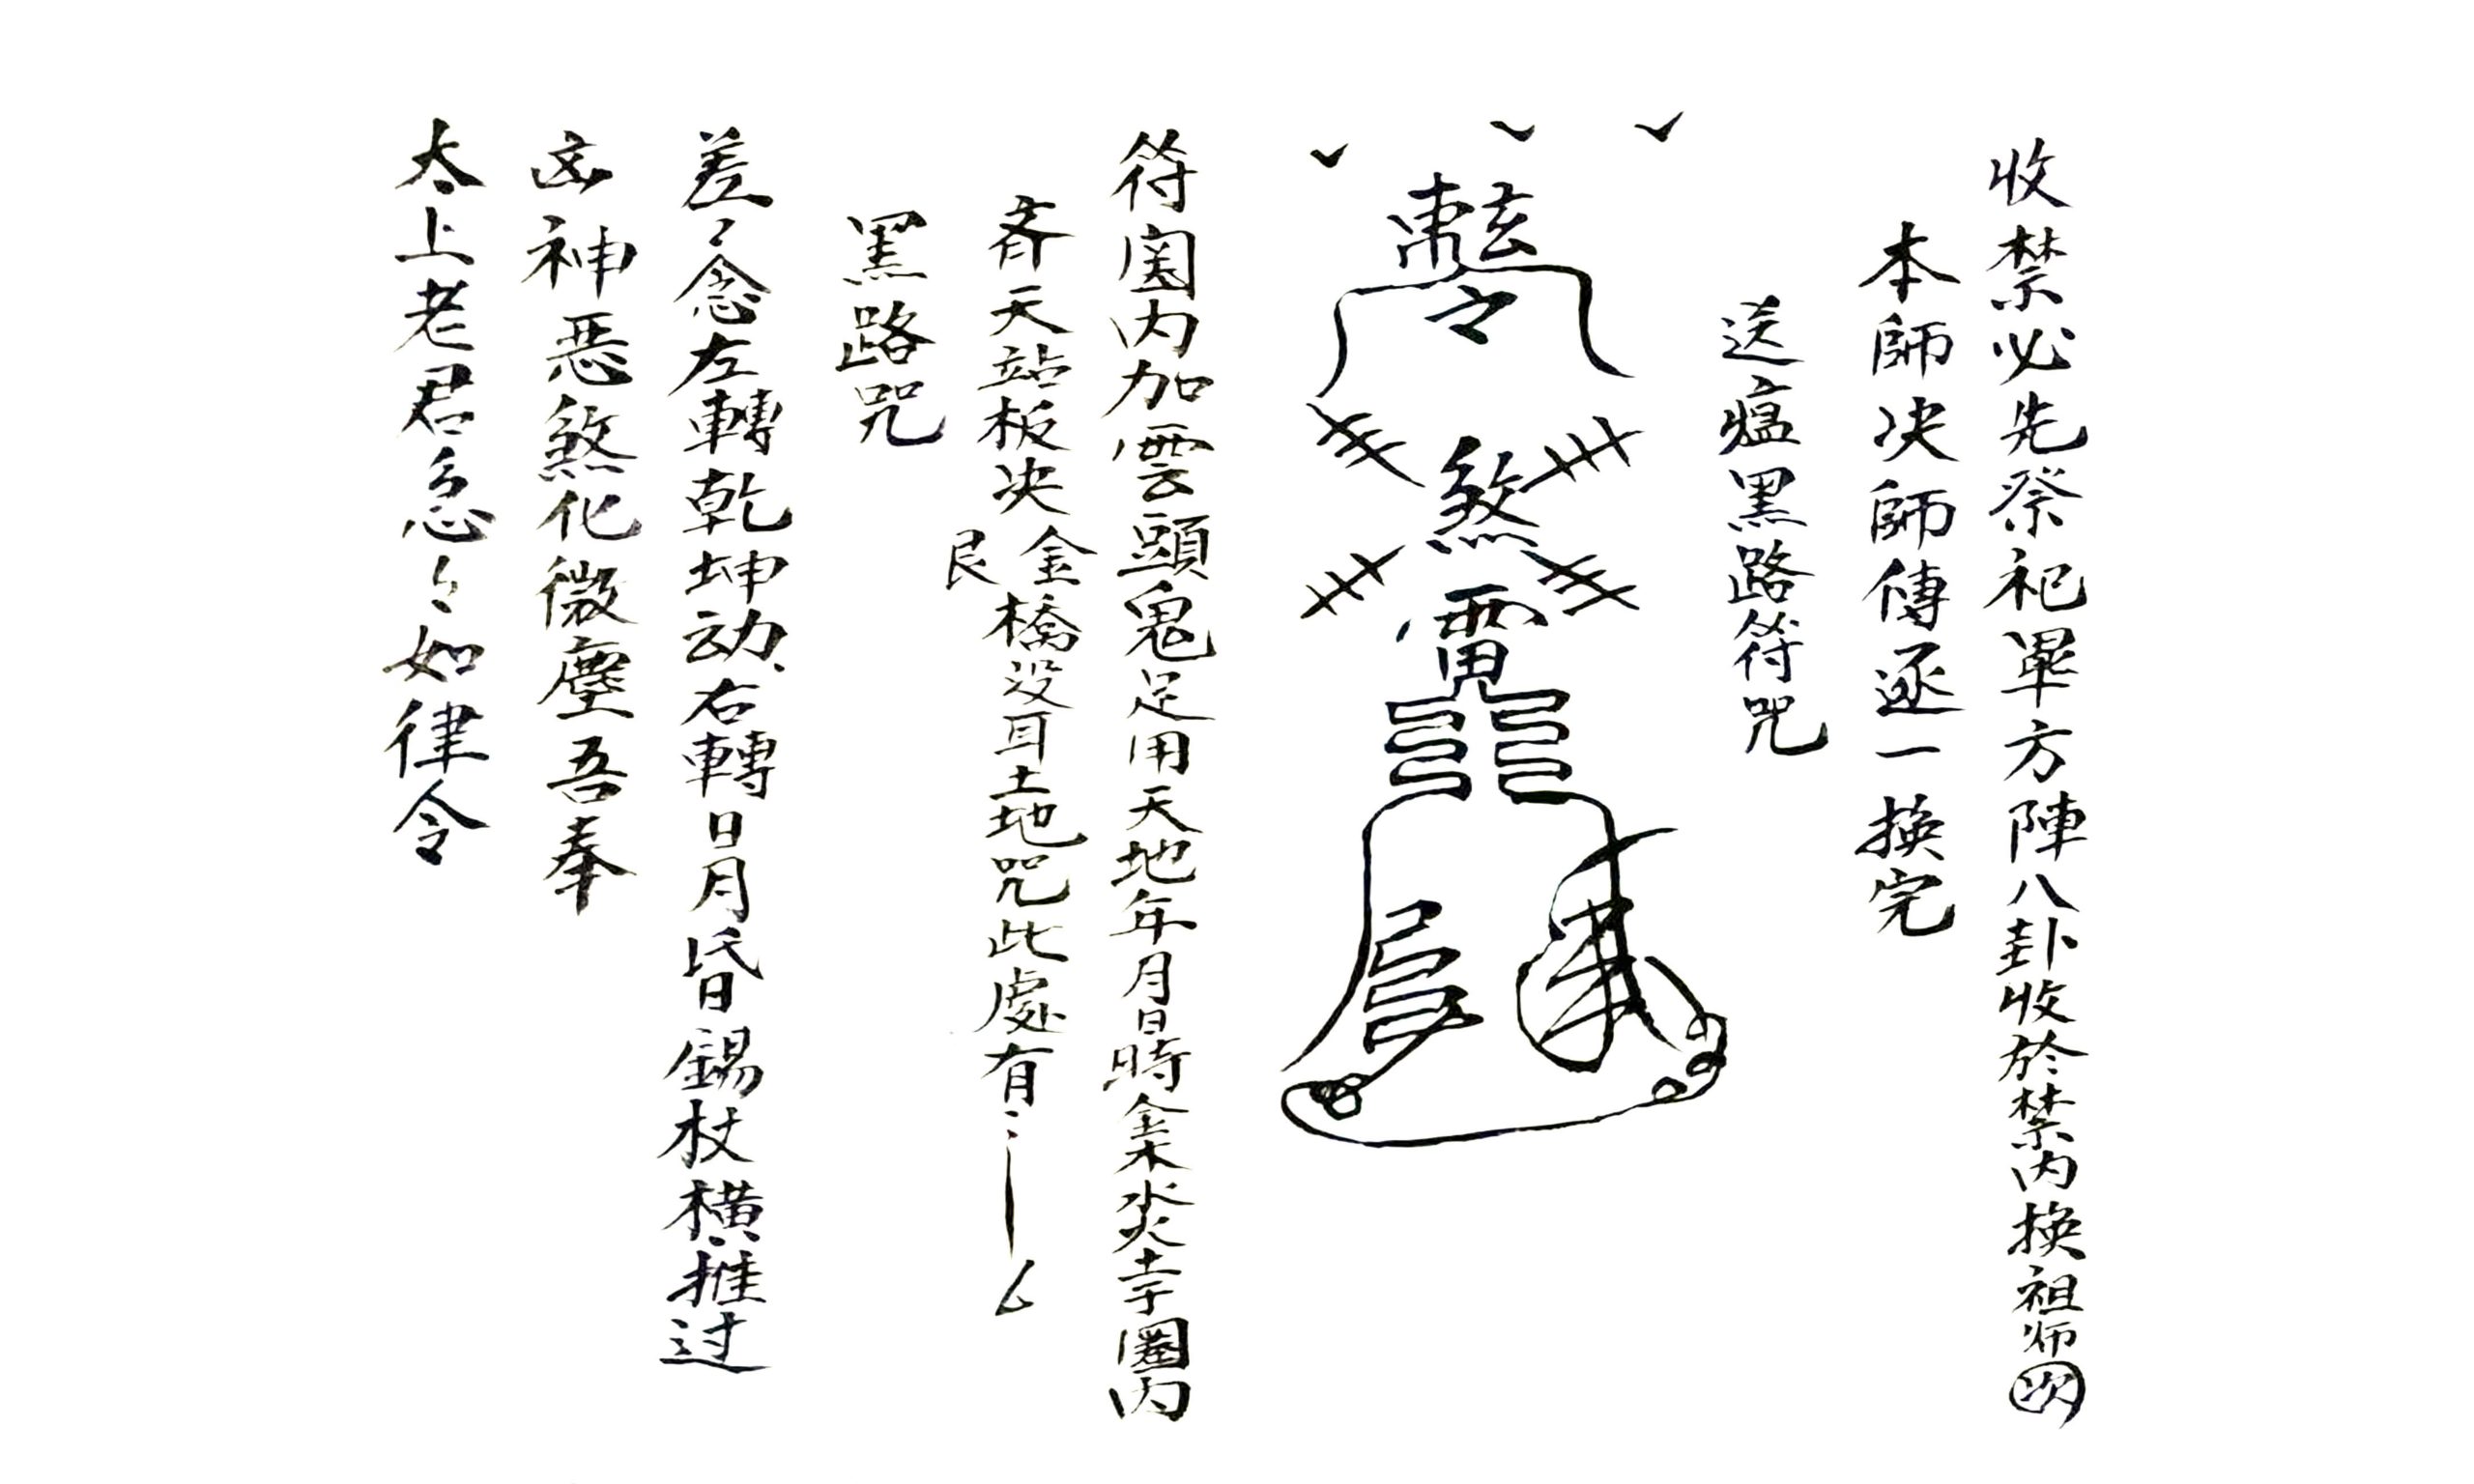 收禁必先祭祀畢方陣八卦收於禁内換祖师決
本師決師傅逐一換完
送瘟黑路符咒
令
煞
符圏内加雲頭鬼足用天地年月日時金木水火土字圈内
斉天站板决金橋没耳土地咒此處有
艮
黑路咒
差々念左轉乾坤动右轉日月昏錫杖橫推过
凶神恶煞化微塵吾奉
太上老君急々如律令